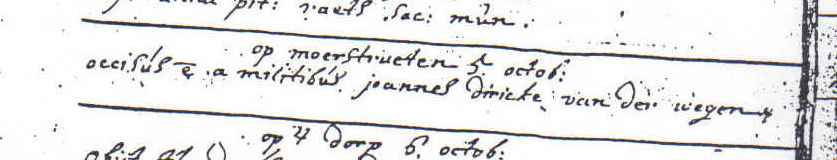 pit: raets. sac: mun.
op moerstraeten 5 octob:
occisus ē a militibus joannes diricke van der wegen
op 't dorp 6. octob:
obijt